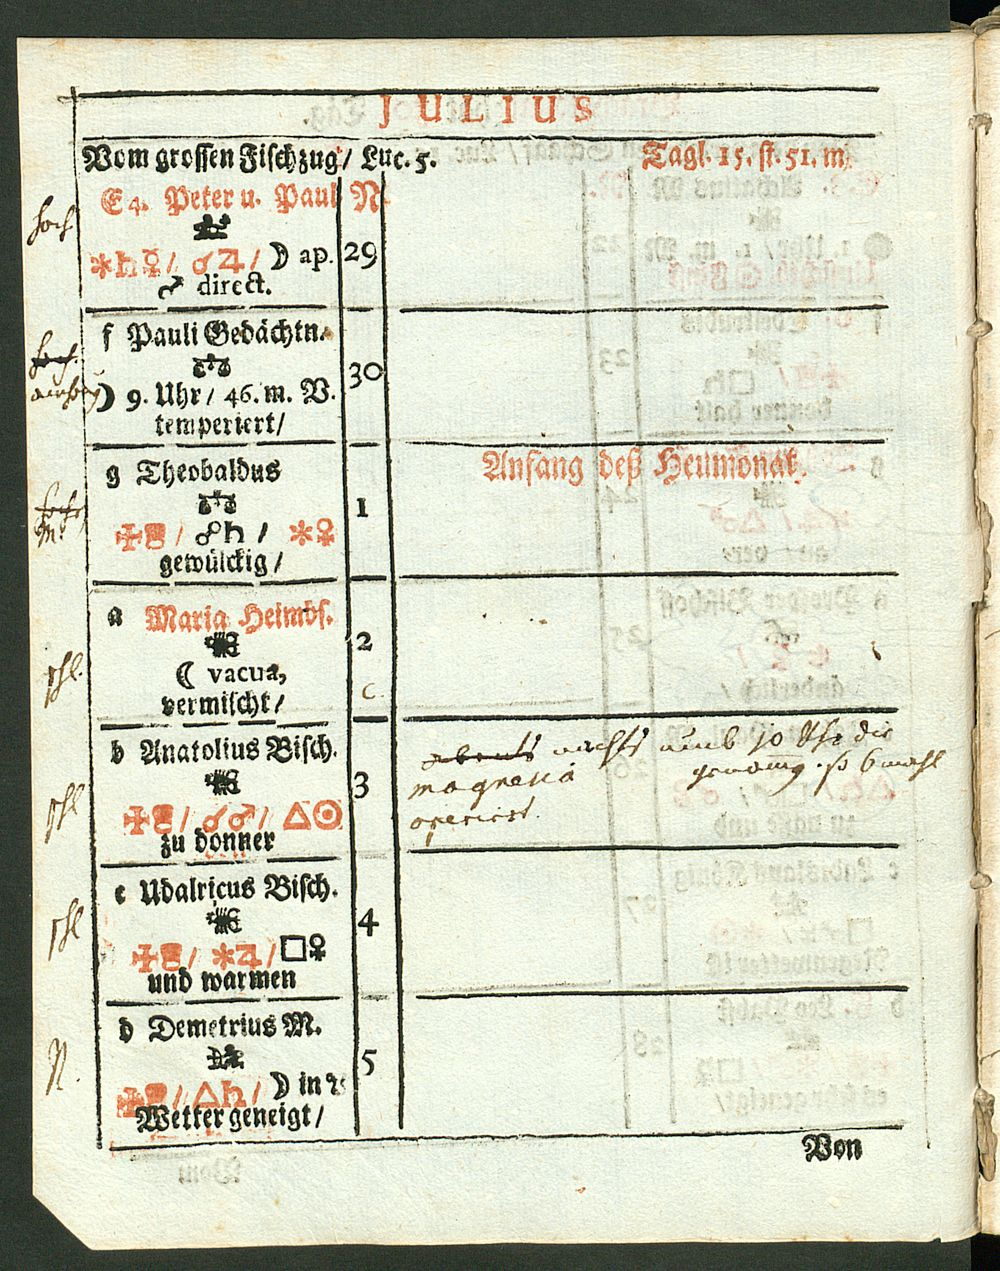 JULIUS
Vom grossen Fischzug / Luc. 5. Tagl. 15. st. 51. m.
E 4. Peter u. Paul N.
☽ ap. 29
♂ direct.
f Pauli Gedächtn.
30
☽ 9. Uhr / 46. m. V.
temperiert /
g Theobaldus
Anfang deß Heumonat.
1
☍♄ / ✶♀
gewülckig /
a Maria Heimbs.
2
☾ vacua,
vermischt /
c.
b Anatolius Bisch.
nachts umb 10 Uhr die
3
magnesia
☌♂ / △☉
operiert.
zu donner
c Udalricus Bisch.
4
✶♃ / □♀
und warmen
d Demetrius M.
5
△♄ / ☽ in
Wetter geneigt /
Von